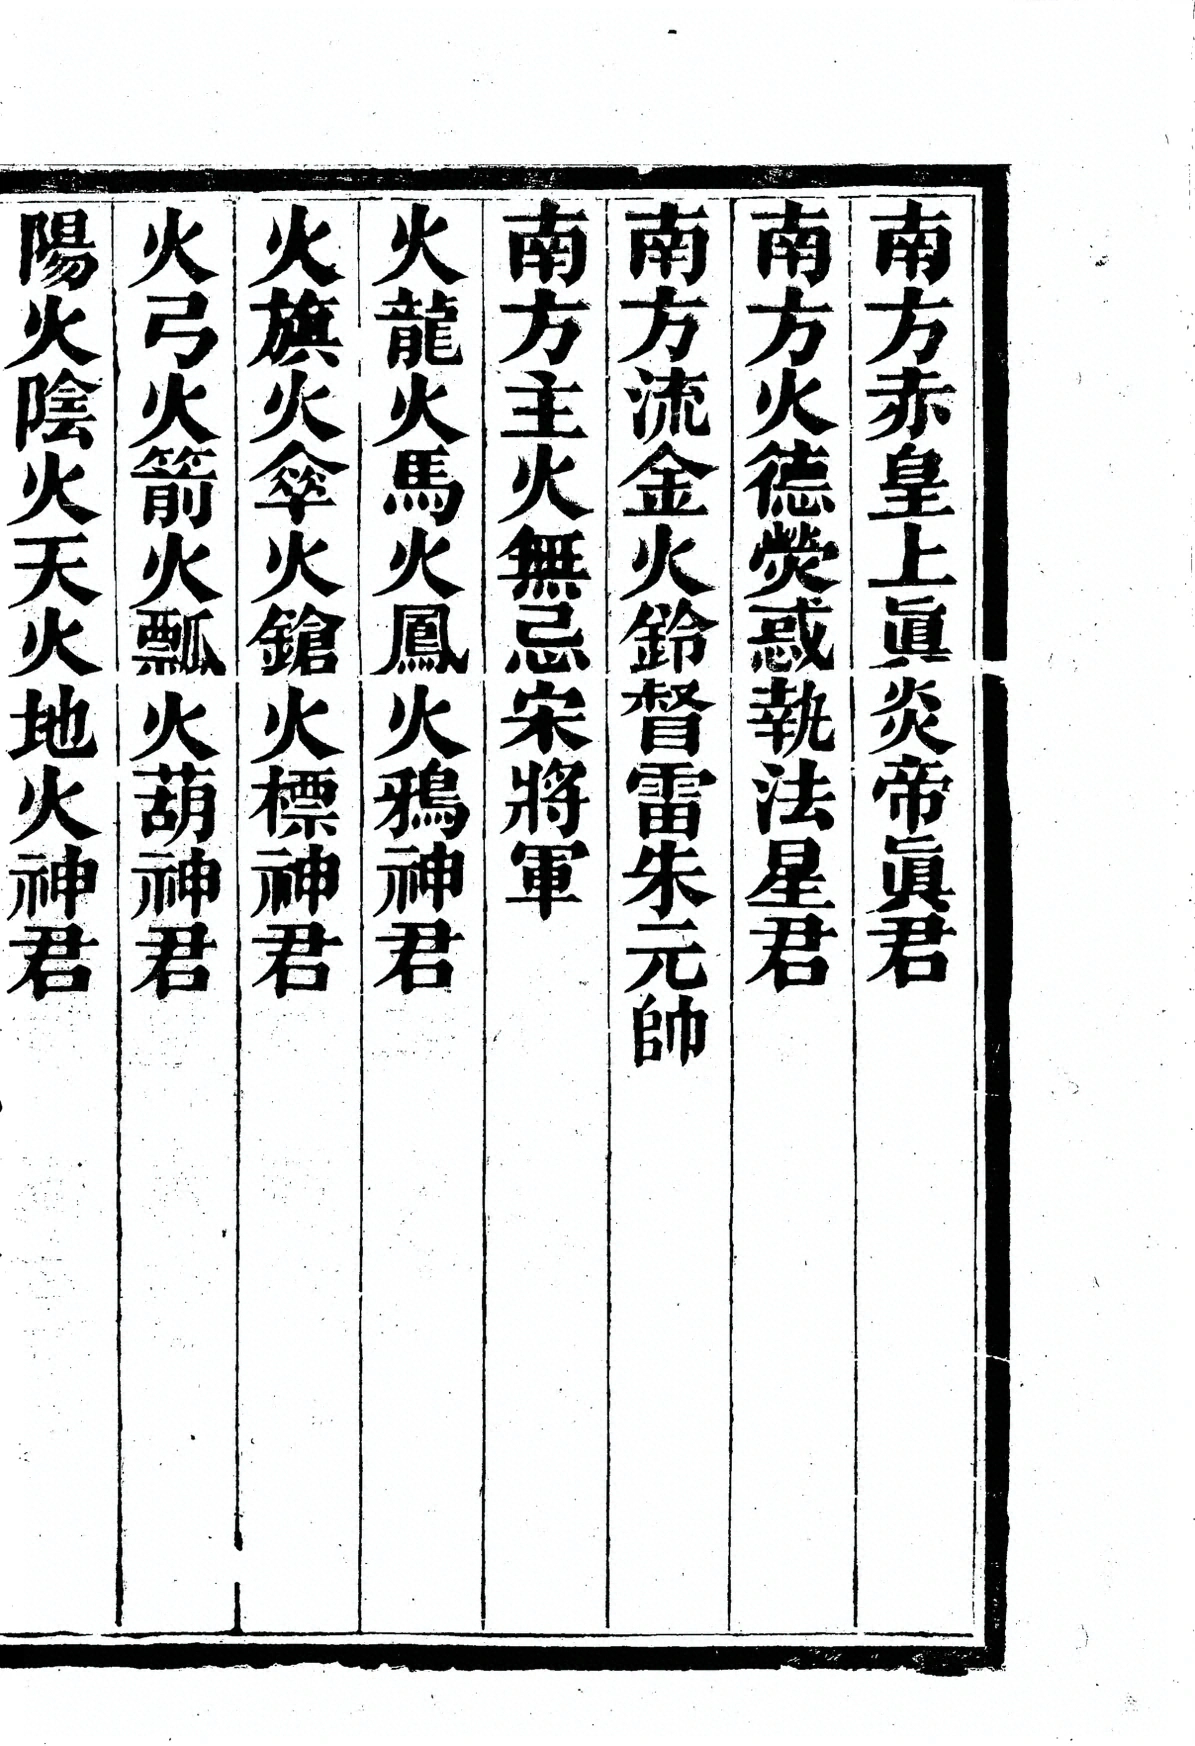 南方赤皇上眞炎帝眞君
南方火德熒惑執法星君
南方流金火鈴督雷朱元帥
南方主火無忌宋將軍
火龍火馬火鳳火鴉神君
火旗火傘火鎗火標神君
火弓火箭火瓢火葫神君
陽火陰火天火地火神君